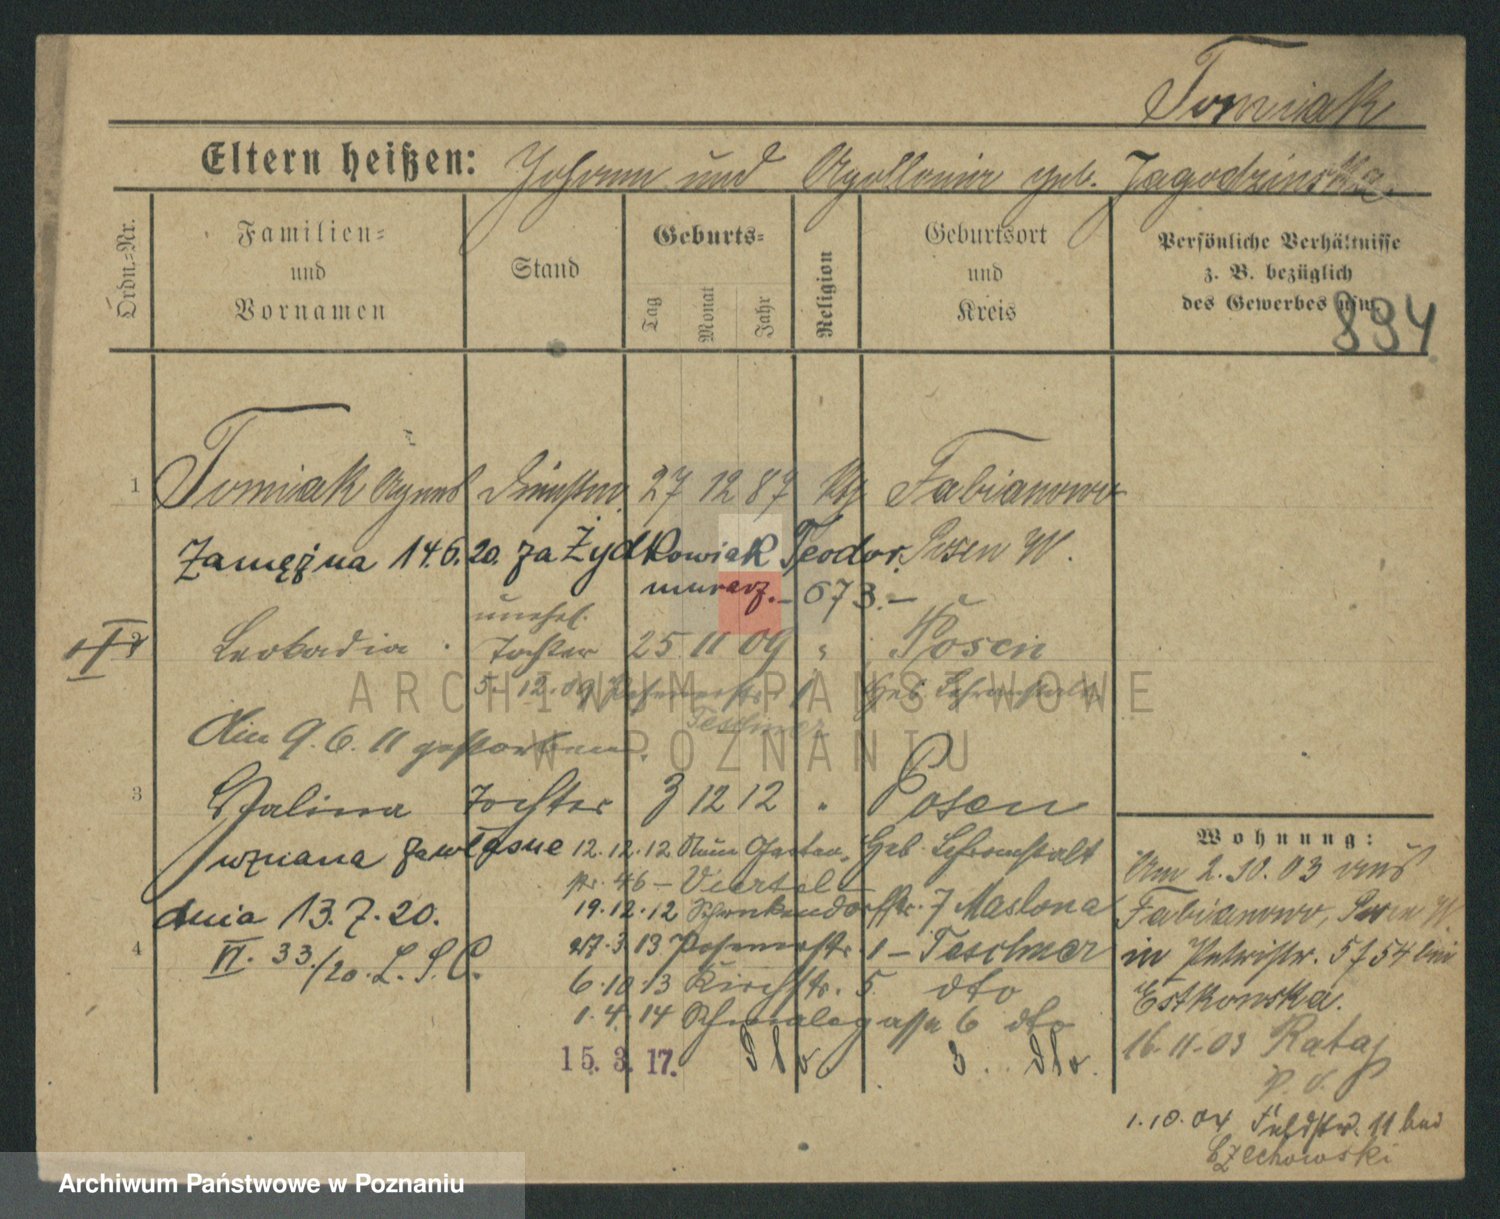 Tomiak
Eltern heißen: Johann und Apollonia geb. Jagodzinska
Ordn.-Nr.
Familien-
und
Vornamen
Stand
Geburts-
Tag
Monat
Jahr
Religion
Geburtsort
und
Kreis
Persönliche Verhältnisse
z. B. bezüglich
des Gewerbes usw.
894
1 Tomiak Agnes 27 12 87 Fabianowo
Zamężna 14.6.20. za Żydkowiak Teodor. Posen W.
murarz. - 673. -
unehl.
2 Leokadia Tochter 25 11 09 " Posen
5. 12. 09 Posenerstr. 1 Heb. Lehranstalt
Teschner
Am 9. 6. 11 gestorben.
3 Halina Tochter 3 12 12 " Posen
uznana za własne 12. 12. 12 Neue Garten- Heb. Lehranstalt
str. 46 - Viertel -
dnia 13. 7. 20. 19. 12. 12 Schenkendorffstr. 7 Maslona
4 VI. 33./20. L. S. C. 27. 3. 13 Posenerstr. 1 - Teschner
6. 10. 13 Kirchstr. 5. dto
1. 4. 14 Schmalegasse 6 dto
15. 3. 17. dto 3. dto.
Wohnung:
Am 2. 10. 03 aus
Fabianowo, Posen W.
in Petristr. 5 bei
Estkowska.
16. 11. 03 Rataj
1. 10. 04 Feldstr. 11 bei
Czechowski
ARCHIWUM PAŃSTWOWE
W POZNANIU
Archiwum Państwowe w Poznaniu